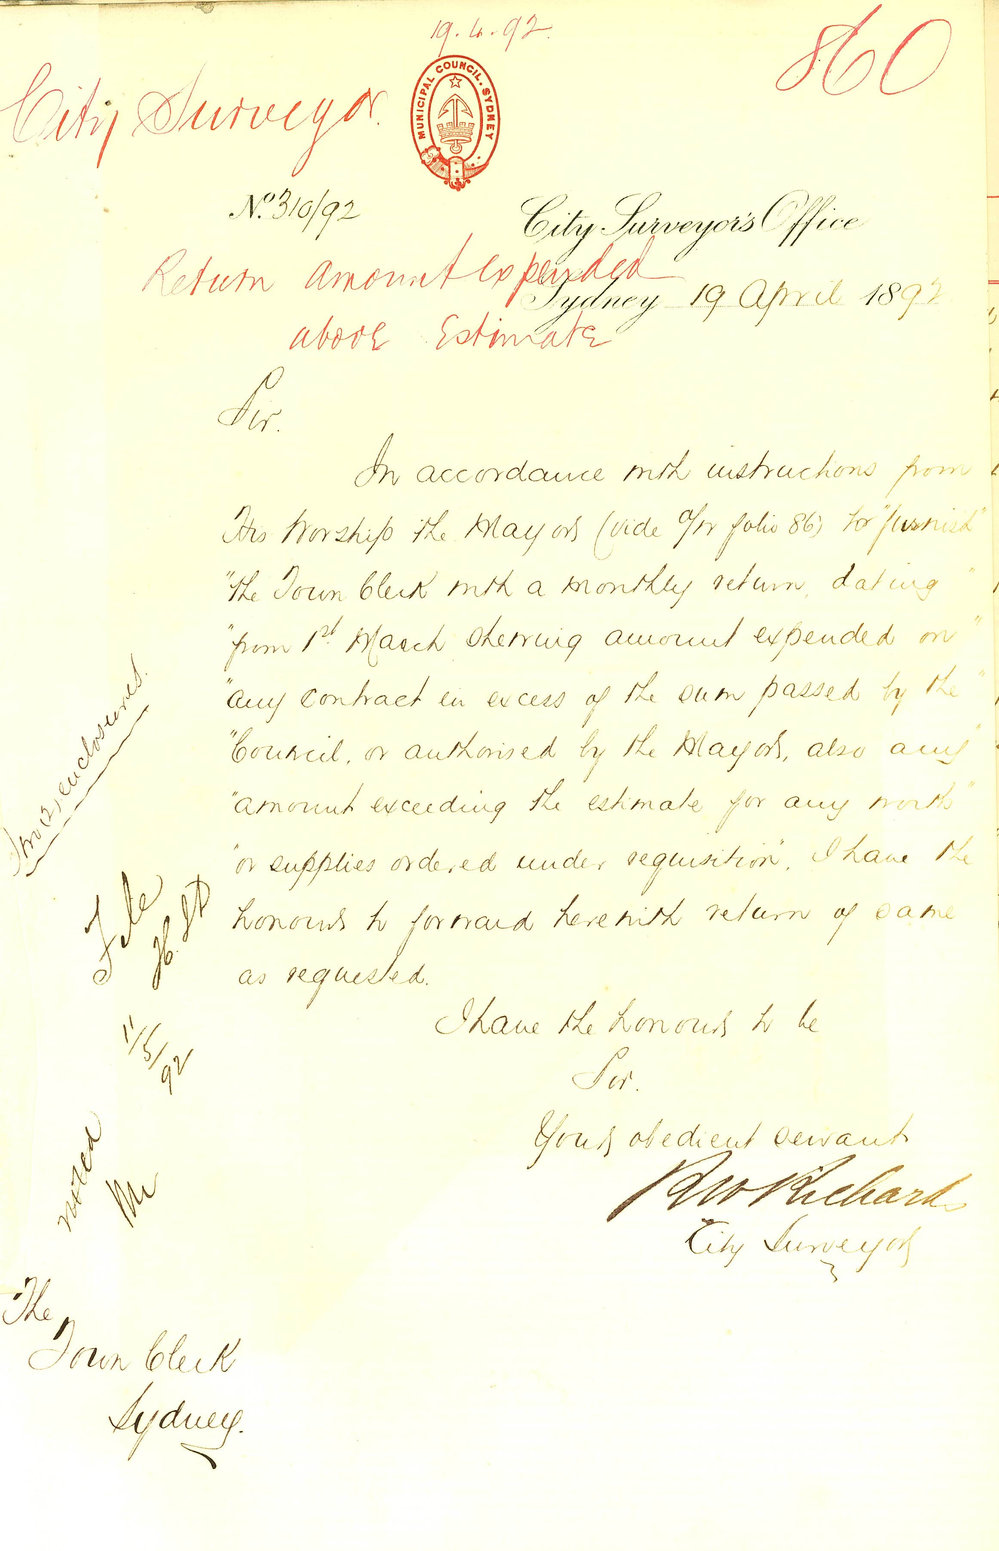 19.4.92.
860
City Surveyor.
MUNICIPAL COUNCIL. SYDNEY
No. 310/92
City Surveyor's Office
Return amount expended
Sydney 19 April 1892
above Estimate
Sir.
In accordance with instructions from
His Worship the Mayor (vide folio 86) to "furnish"
"the Town Clerk with a monthly return, dating"
"from 1st March shewing amount expended on"
"any contract in excess of the sum passed by the"
"Council, or authorised by the Mayor, also any"
"amount exceeding the estimate for any work"
"or supplies ordered under requisition". I have the
honour to forward herewith return of same
as requested.
I have the honour to be
Sir.
Your obedient servant
RW Richards
City Surveyor
enclosures.
File
11/5/92
noted
The
Town Clerk
Sydney.